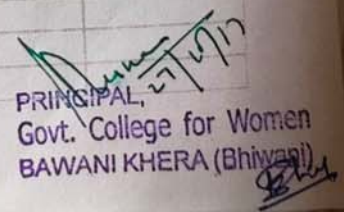 27/10/17
PRINCIPAL,
Govt. College for Women
BAWANI KHERA (Bhiwani)